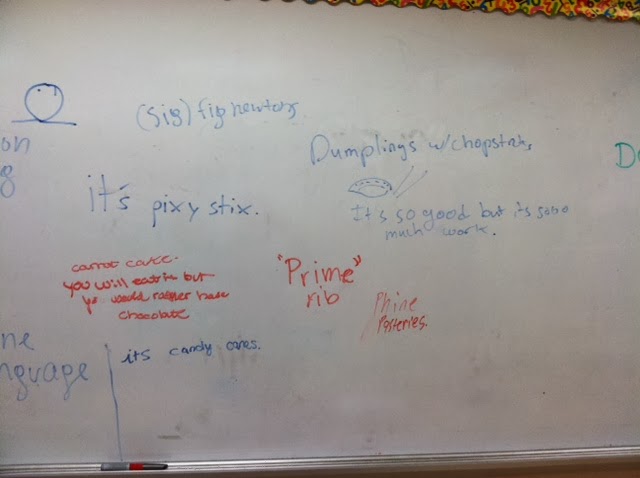 (sig) fig newtons
on
g
Dumplings w/chopsticks
D
it's pixy stix.
It's so good but its sooo
much work.
carrot cake.
you will eat it but
yo would rather have
chocolate
"Prime"
rib
Phine
Pasteries.
ne
nguage
its candy canes.